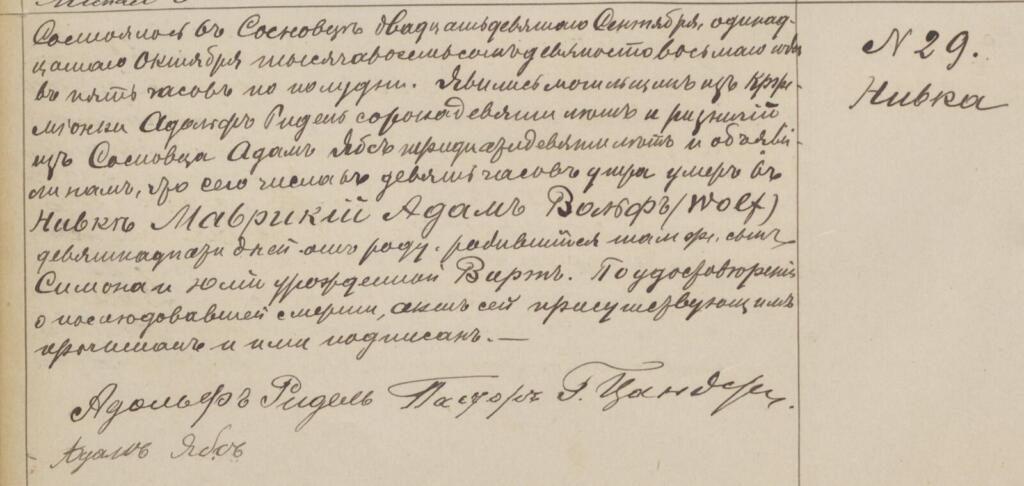 Состоялось въ Сосновцѣ двадцатьдевятаго Сентября, одинад-
цатаго Октября тысячавосемьсотъдевяносто восьмаго года
въ пять часовъ по полудни. Явились могильщикъ изъ
Адольфъ Ридель сорокадевяти лѣтъ и
изъ Сосновца Адамъ Ябсъ тридцатидевяти лѣтъ и объяви-
ли намъ, что сего числа въ девять часовъ утра умеръ въ
Нивкѣ Маврикій Адамъ Вольфъ (Wolf)
девятнадцати дней отъ роду, родившійся тамже, сынъ
Симона и Юліи урожденной Виртъ. По удостовѣреніи
о послѣдовавшей смерти, актъ сей присутствующимъ
прочитанъ и ими подписанъ. —
Адольфъ Ридель Пасторъ Г. Цандеръ.
Адамъ Ябсъ
N 29.
Нивка